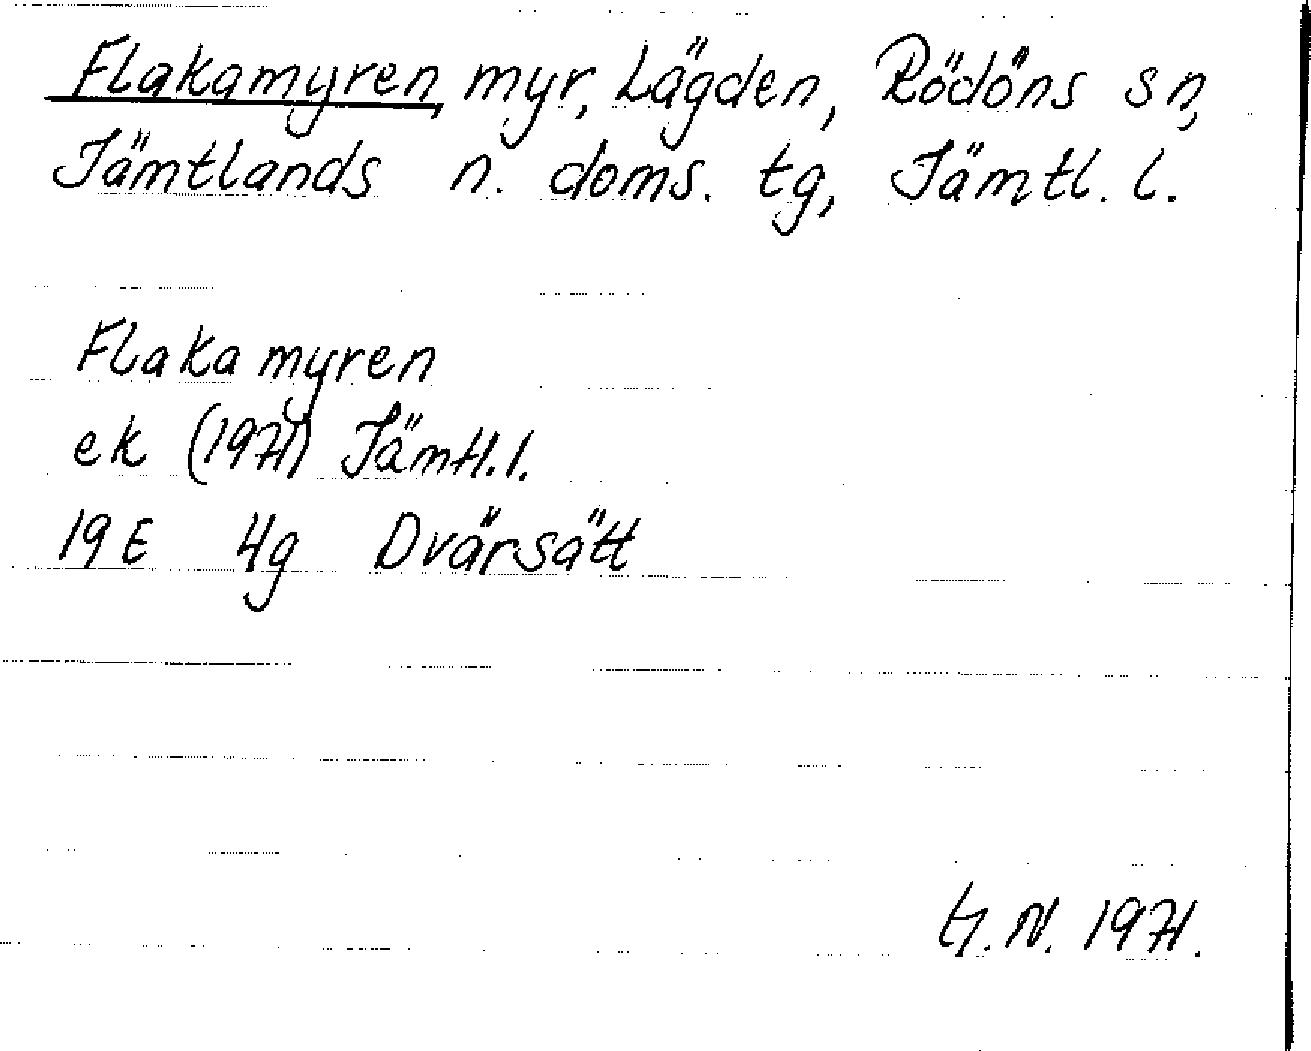 Flakamyren, myr, Lägden, Rödöns sn,
Jämtlands n. doms. tg, Jämtl. l.
Flakamyren
ek (1971) Jämtl. l.
19E 4g Dvärsätt
G. N. 1971.